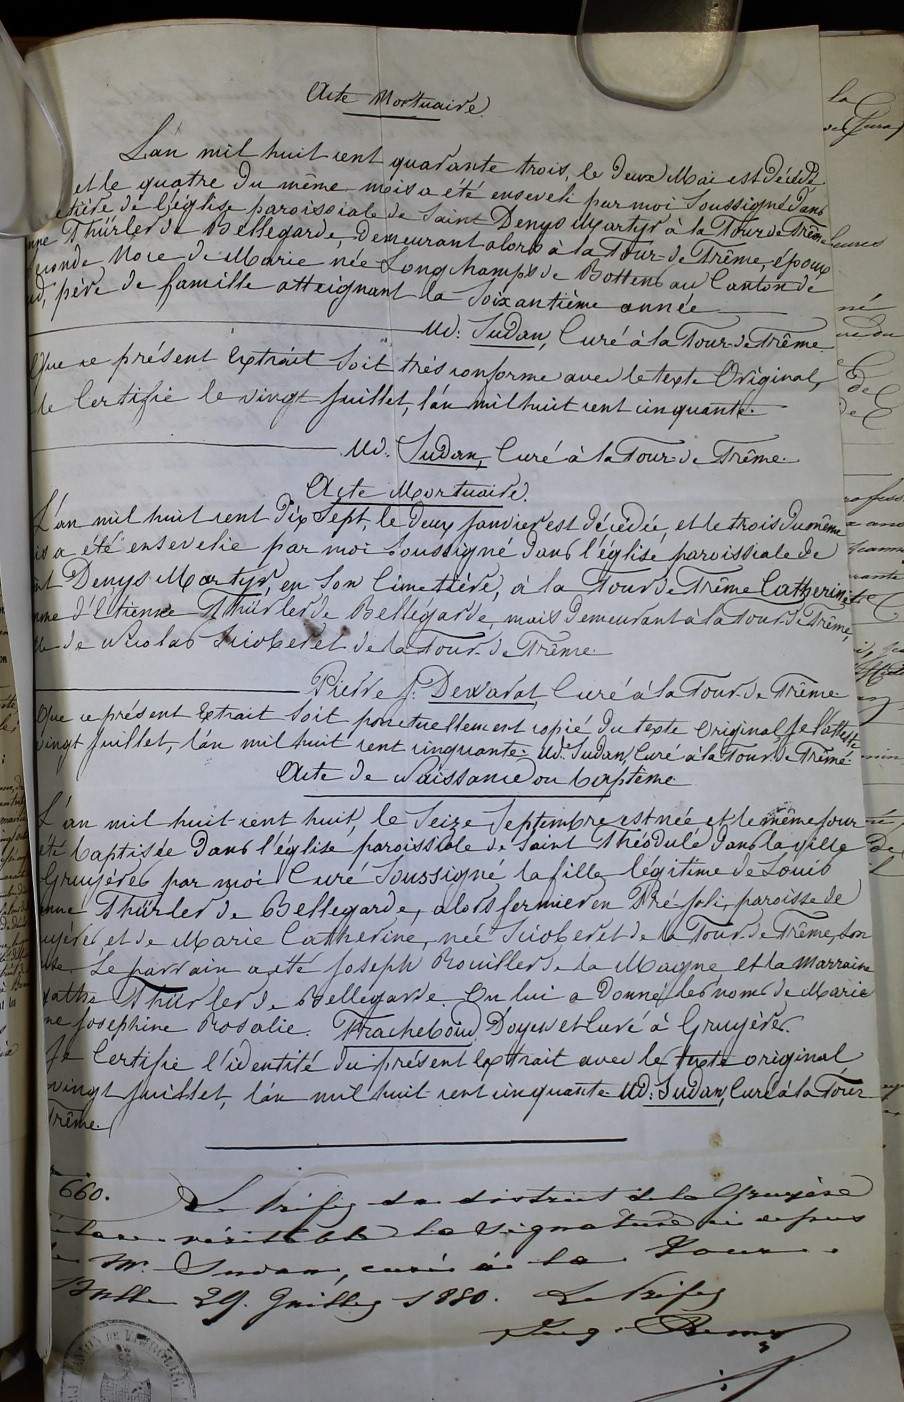 Acte Mortuaire.
L'an mil huit cent quarante trois, le deux Mai est décédé
et le quatre du même mois a été enseveli par moi Soussigné dans
tière de l'église paroissiale de Saint Denys Martyr à la Tour de Trême
Thürler de Bellegarde, demeurant alors à la Tour de Trême, époux
conde Noce de Marie née Longchamps de Bottens au Canton de
ud, père de famille atteignant la Soixantième année
Ud: Sudan, Curé à la Tour de Trême.
Que ce présent Extrait Soit très conforme avec le texte Original,
Je Certifie le vingt Juillet, l'an mil huit cent cinquante.
Ud. Sudan, Curé à la Tour de Trême.
Acte Mortuaire.
L'an mil huit cent Dix Sept, le deux Janvier est décédée, et le trois du même
is a été ensevelie par moi Soussigné dans l'église paroissiale de
nt Denys Martyr, en Son Cimetière, à la Tour de Trême Catherine
mme d'Etienne Thürler de Bellegarde, mais demeurant à la Tour de Trême,
de Nicolas Scioberet de la Tour de Trême.
Pierre J. Dewarat, Curé à la Tour de Trême
Que ce présent Extrait Soit ponctuellement copié du texte Original Je l'atteste
vingt Juillet, l'an mil huit cent cinquante. Ud. Sudan, Curé à la Tour de Trême.
Acte de Naissance ou Baptême
L'an mil huit cent huit, le Seize Septembre est née et le même jour
été baptisée dans l'église paroissiale de Saint Théodule dans la ville
Gruyères par moi Curé Soussigné la fille légitime de Louis
Thürler de Bellegarde, alors fermier en Pré Joli, paroisse de
uyères et de Marie Catherine, née Scioberet de la Tour de Trême, Son
Le parrain a été Joseph Rouiller de la Magne et la Marraine
Thürler de Bellegarde. On lui a donné les noms de Marie
Josephine Rosalie. Tracheboud Doyen et Curé à Gruyères.
Je Certifie l'identité du présent Extrait avec le texte original
vingt Juillet, l'an mil huit cent cinquante. Ud. Sudan, Curé à la Tour
Trême.
660. Le Préfet du district de la Gruyère
véritable la Signature ci dessus
de Mr. Sudan, curé à la Tour.
Bulle 29. Juillet 1850. Le Préfet